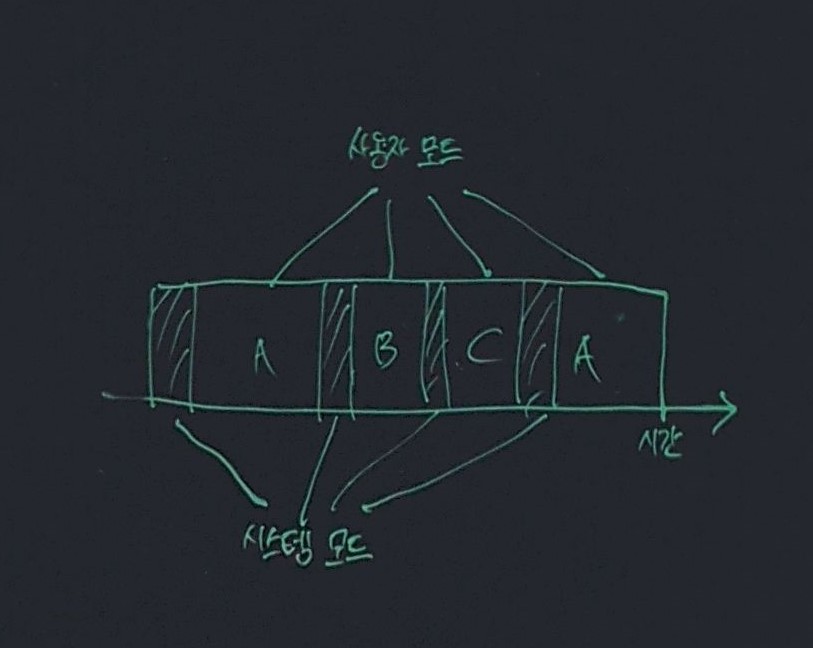 사용자 모드
A B C A
시간
시스템 모드